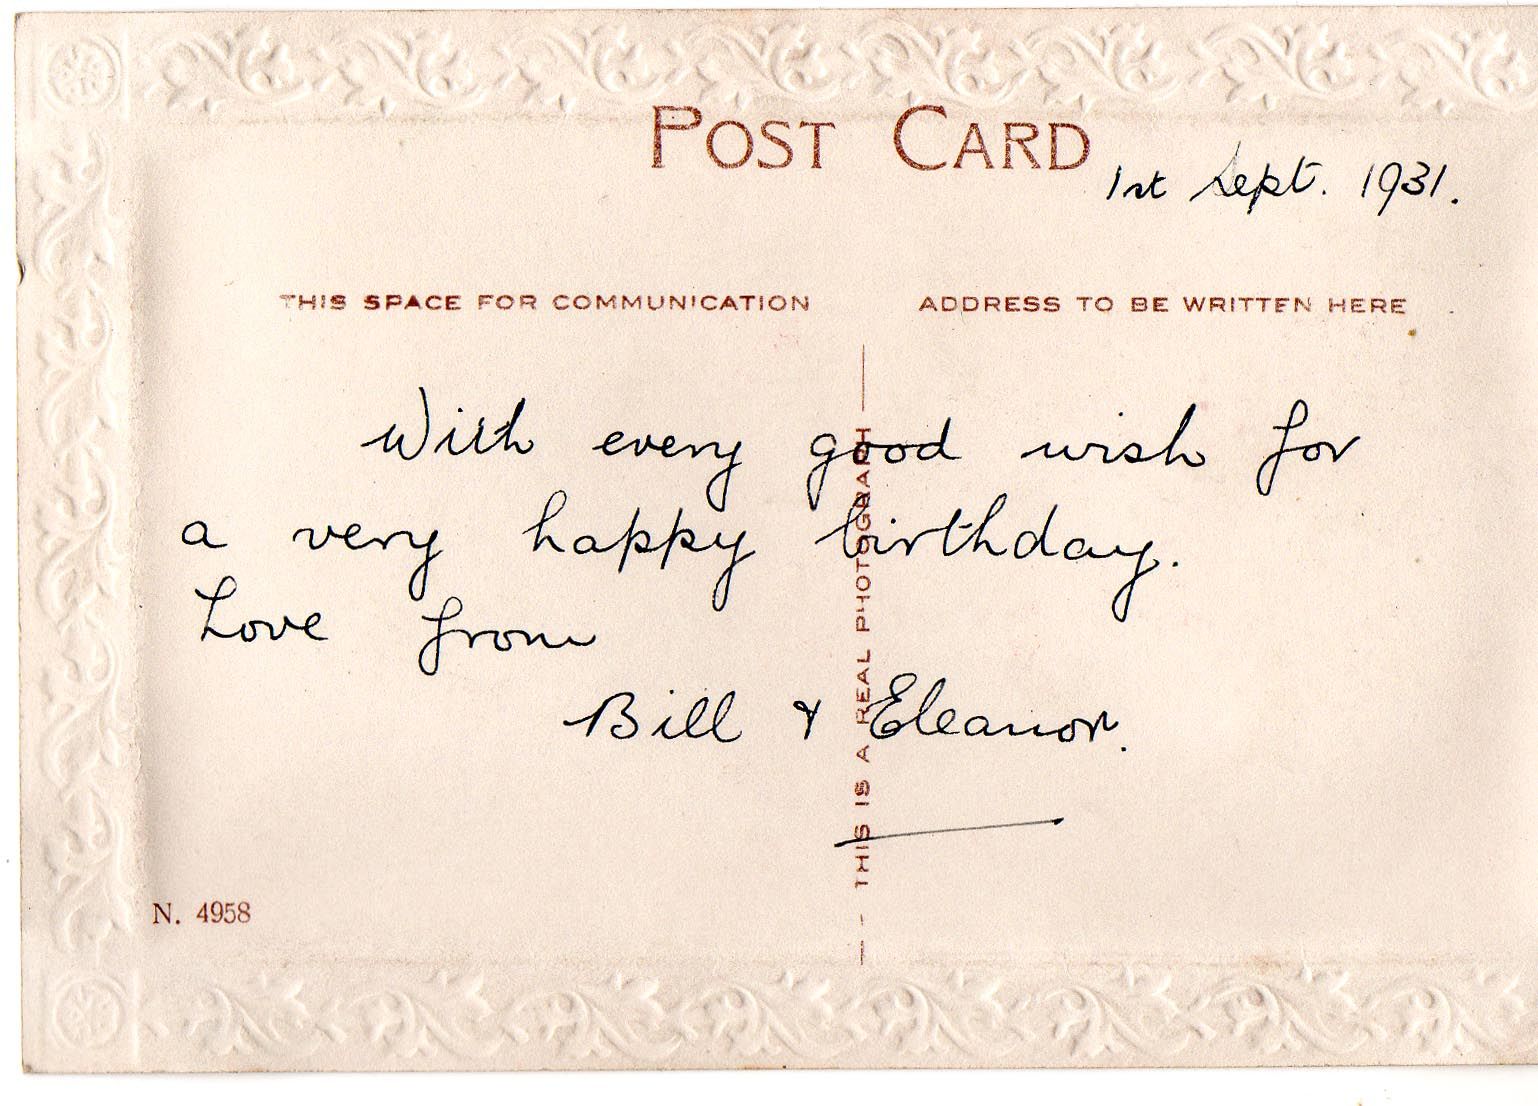 POST CARD
1st Sept. 1931.
THIS SPACE FOR COMMUNICATION
ADDRESS TO BE WRITTEN HERE
With every good wish for
a very happy birthday.
Love from
Bill & Eleanor.
THIS IS A REAL PHOTOGRAPH
N. 4958